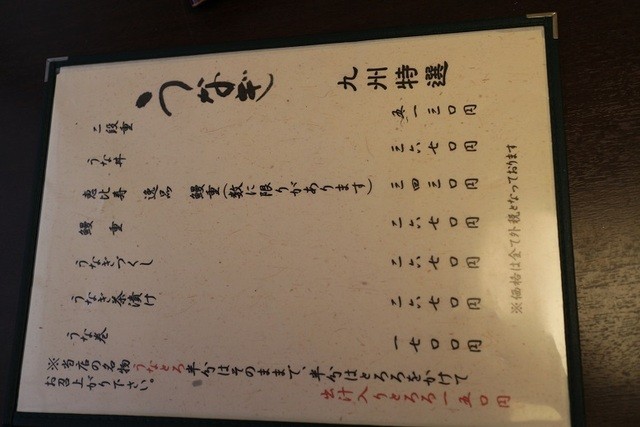 九州特選
うなぎ
二段重 五一三〇円
うな丼 三六七〇円
恵比寿 逸品 鰻重(数に限りがあります) 三四三〇円
鰻重 二六七〇円
うなぎづくし 二六七〇円
うなぎ茶漬け 二六七〇円
うな巻 一七〇〇円
※当店の名物うなとろ半分はそのままで、半分はとろろをかけて
お召上がり下さい。
出汁入りとろろ一五〇円
※価格は全て外税となっております